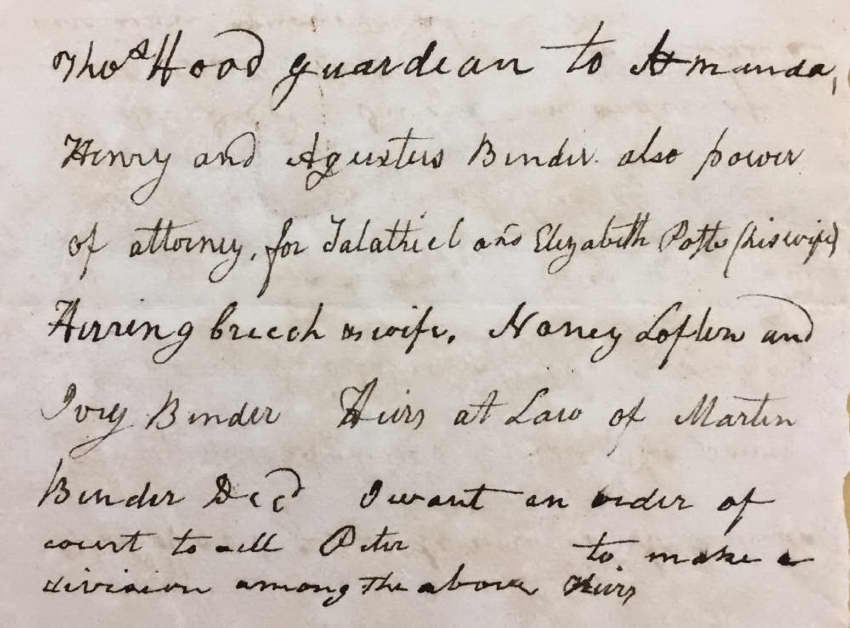 Thos Hood guardian to Amanda,
Henry and Agustus Binder also power
of attorney, for Salathiel and Elizabeth Potts (his wife)
Herring Creech & wife. Nancy Loften and
Ivey Binder Heirs at Law of Martin
Binder Decd I want an order of
court to sell Peter to make a
division among the above Heirs